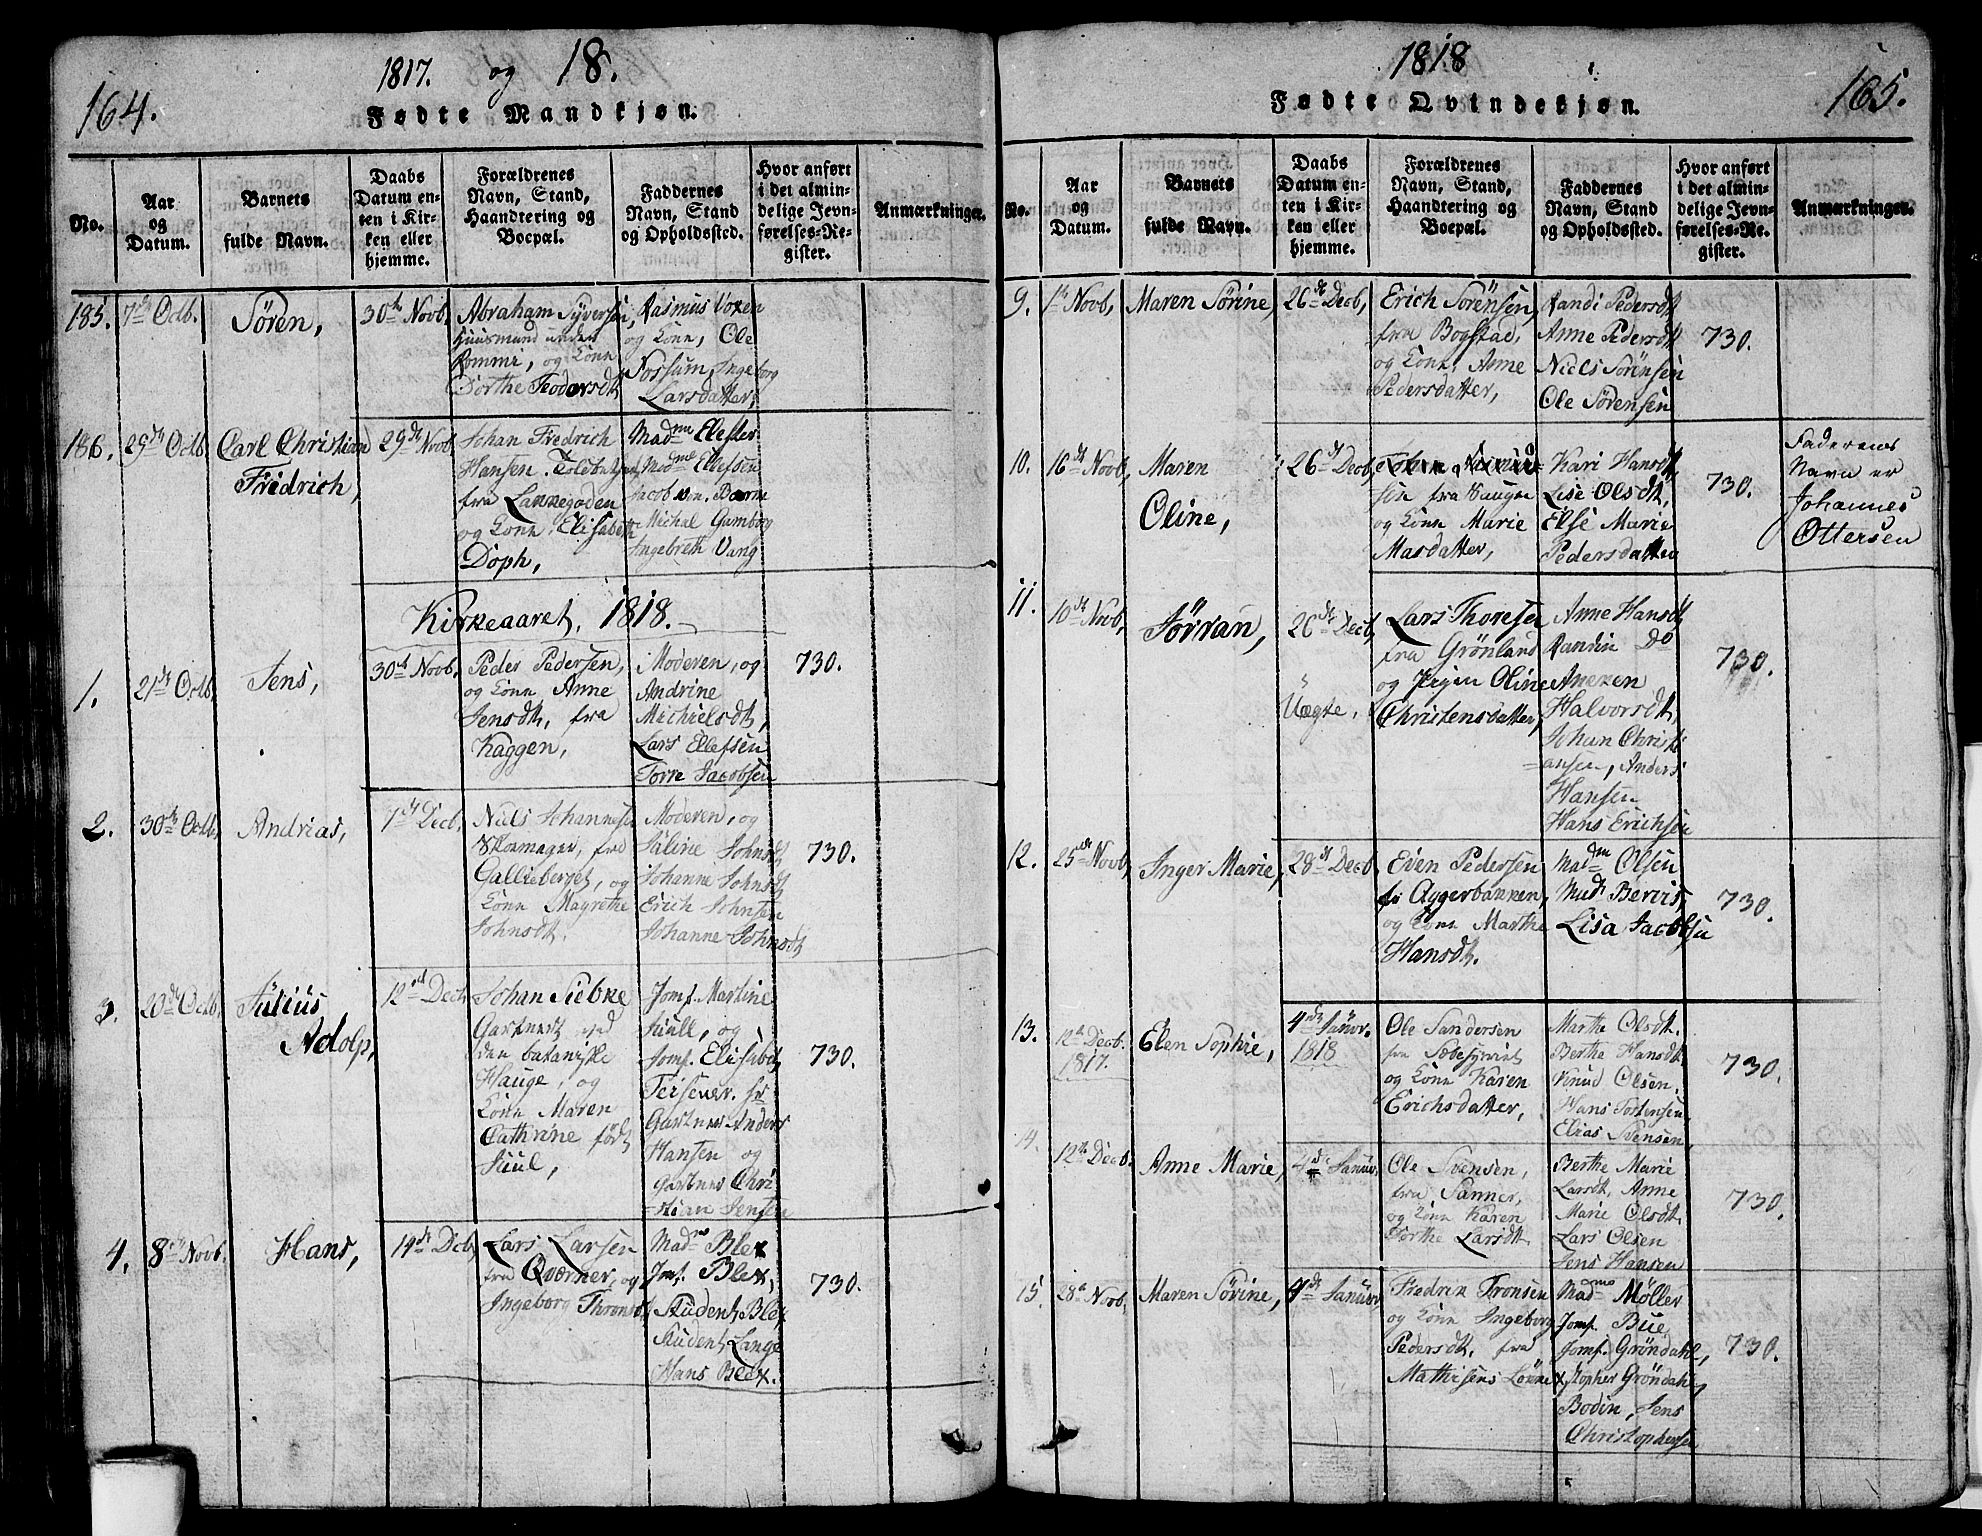 1817. og 18.
164.
Fødte Mandkjøn.
No.
Aar
og
Datum.
Barnets
fulde Navn.
Daabs
Datum en-
ten i Kir-
ken eller
hjemme.
Forældrenes
Navn, Stand,
Haandtering og
Boepæl.
Faddernes
Navn, Stand
og Opholdssted.
Hvor anført
i det almin-
delige Jevn-
førelses-Re-
gister.
Anmærkninger.
185. 7de Octb. Søren, 30te Novb.
Abraham Syversen,
Huusmand under
Rommi, og Kone
Dorthe Teodorsdt
Rasmus Voxen
og Kone, Ole
Fossum, Ingeborg
Larsdatter,
186. 25de Octb. Carl Christiand
Fredrich,
29de Novb.
Johan Fredrich
Hansen
fra Lakkegaden
og Kone, Elisabeth
Doph,
Madme Elefser
Madme Ellefsen
Jacob von
Michal Gumborg
Ingebreth Vang
Kirkeaaret, 1818.
1. 21de Octb. Jens, 30te Novb.
Peder Pedersen,
og Kone Anne
Jensdt, fra
Kaggen,
Moderen, og
Andrine
Michielsdt,
Lars Ellefsen
Torre Jacobsen
730.
2. 30te Octb. Andrias, 7de Decb.
Niels Johannesen
Skomager, fra
Gallieberget, og
Kone Magrethe
Johnsdt.
Moderen, og
Johnsdt
Johanne Johnsdt
Erich Johnsen
Johanne Johnsdt
730.
3. 20de Octb. Julius
Adolp,
12te Decb.
Johan Siebke
Gartner ved
den botaniske
Hauge, og
Kone Maren
Cathrine født
Juul,
Jomf. Martine
Juull, og
Jomf. Elisabet
Gartner Anders
Hansen og
Gartner Chri
=stian Jensen
730.
4. 8de Novb. Hans, 14de Decb.
Lars Larsen
fra Qværner, og
Ingeborg Thronsdt
Madme Blex
Jmf. Blex,
Student Blex
Student Lange
Hans Blex.
730.
1818
165.
Fødte Qvindekjøn.
No.
Aar
og
Datum.
Barnets
fulde Navn.
Daabs
Datum en-
ten i Kir-
ken eller
hjemme.
Forældrenes
Navn, Stand,
Haandtering og
Boepæl.
Faddernes
Navn, Stand
og Opholdssted.
Hvor anført
i det almin-
delige Jevn-
førelses-Re-
gister.
Anmærkninger.
9. 1te Novb, Maren Sørine, 26de Decb,
Erich Sørensen,
fra Bogstad,
og Kone, Anne
Pedersdatter,
Randi Pedersdt
Anne Pedersdt
Niels Sörensen
Ole Sörensen
730.
10. 16de Novb, Maren
Oline,
26de Decb,
sen fra Haugen
og Kone Marie
Masdatter,
Kari Hansdt,
Lise Olsdt,
Else Marie
Pedersdatter
730.
Faderens
Navn er
Johannes
Ottersen
11. 10de Novb, Jörran, 26de Decb,
Uægte,
Lars Thoresen
fra Grönland
og Pigen Oline
Christensdatter,
Anne Hansdt
Randin Do
Aneken
Halvorsdt,
Johan Christi
=ansen, Anders
Hansen
Hans Erichsen
730.
12. 25de Novb, Inger Marie, 28de Decb
Even Pedersen
fr Aggerbakken,
og Kone Marthe
Hansdt.
Madm Olsen
Mad. Bervis,
Lisa Jacobsen
730.
13. 12te Decb.
1817.
Elen Sophie,
4de Janur.
1818
Ole Sandersen
og Kone Karen
Erichsdatter,
Marthe Olsdt.
Berthe Hansdt.
Knud Olsen.
Hans Torstensen,
Elias Svensen,
730.
14. 12te Decb. Anne Marie, 4de Januar,
Ole Svensen,
fra Sanner,
og Kone Karen
Dorthe Larsdt
Berthe Marie
Larsdt, Anne
Marie Olsdt.
Lars Olsen
Jens Hansen
730.
15. 28de Novb, Maren Sörine, 4de Januar
Fredrik Tronsen
og Kone Ingeborg
Pedersdt, fra
Mathisens Lökke
Madme Möller
Jomf. Bue
Jomf. Gröndahl,
Kristopher Gröndahl,
Bodin, Jens
Christophersen
730.